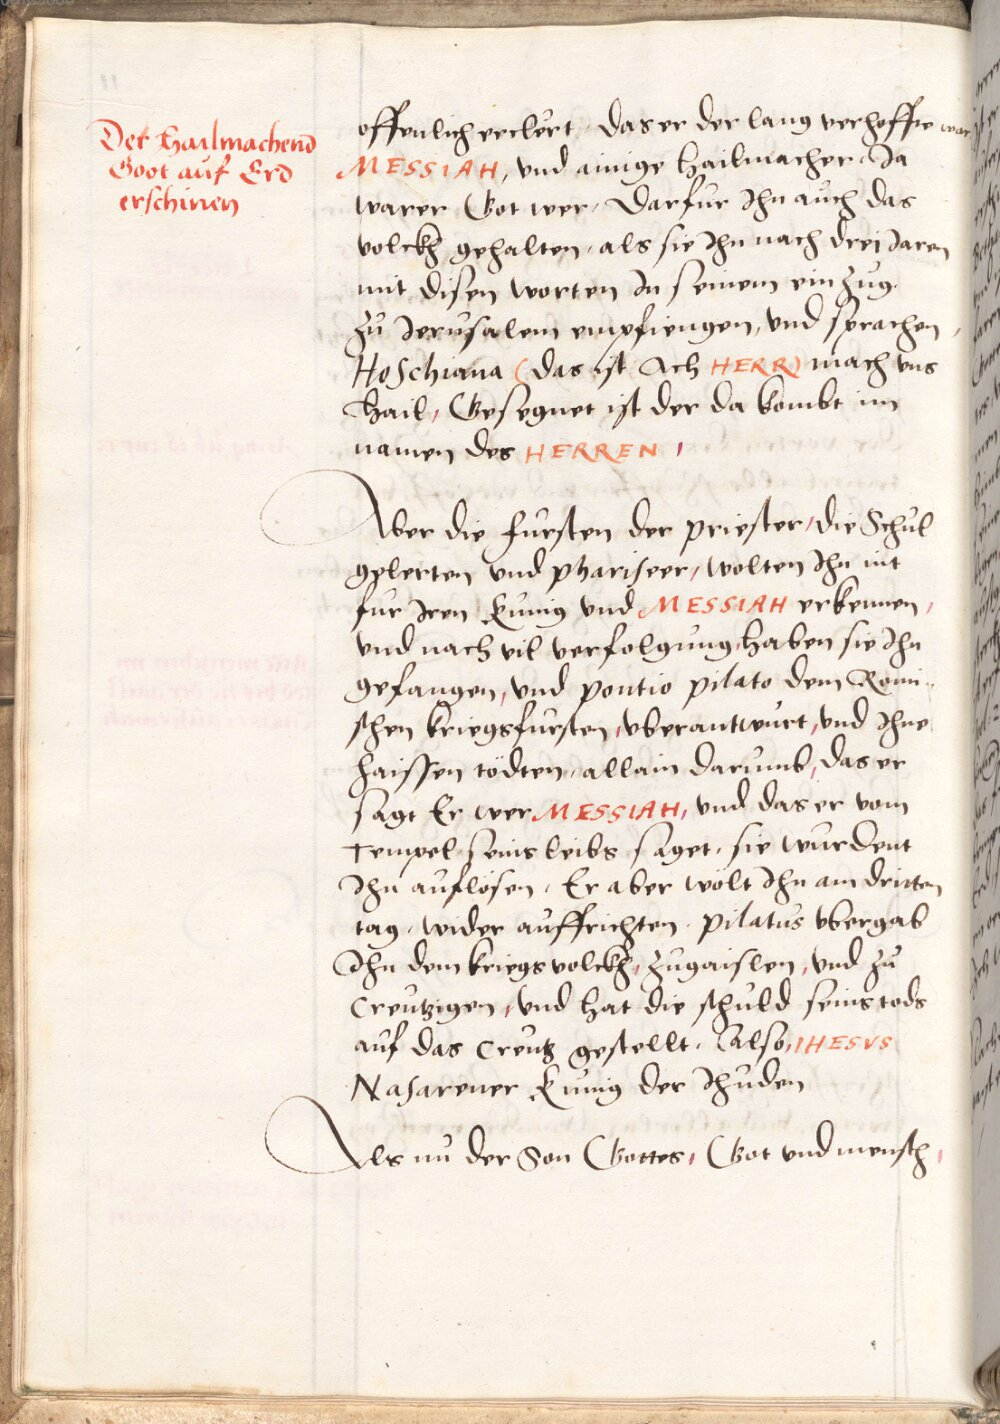 Der Hailmachend
Goot auf Erd
erschinen
offenlich erclert, das er der lang verhoffte war
MESSIAH, vnd ainige hailmacher, Ja
warer Got wer, Darfur Jhn auch das
volckh gehalten, als sie Jhn nach drej Jaren
mit disen worten Jn seinem einzug
zu Jerusalem empfiengen, vnd sprachen,
Hoschiana (das ist Ach HERR) mach vns
Hail, Gesegnet ist der da kombt im
namen des HERREN,
Aber die fursten der priester, die Schul
gelerten vnd phariseer, wolten Jhn nit
fur Jren Kunig vnd MESSIAH erkennen,
vnd nach vil verfolgung haben sie Jhn
gefangen, vnd pontio pilato dem Romi-
schen kriegsfursten, vberantwurt, vnd Jhne
haissen tödten, allain darumb, das er
sagt Er wer MESSIAH, vnd das er vom
Tempel seins leibs saget, sie wurdent
Jhn auflösen, Er aber wölt Jhn am dritten
tag, wider auffrichten. pilatus vbergab
Jhn dem kriegsvolckh, zugaislen, vnd zu
Creutzigen, vnd hat die schuld seins tods
auf das Creutz gestellt. Also, IHESVS
Nasarener Kunig der Jhuden
Als nu der Son Gottes, Got vnd mensch,